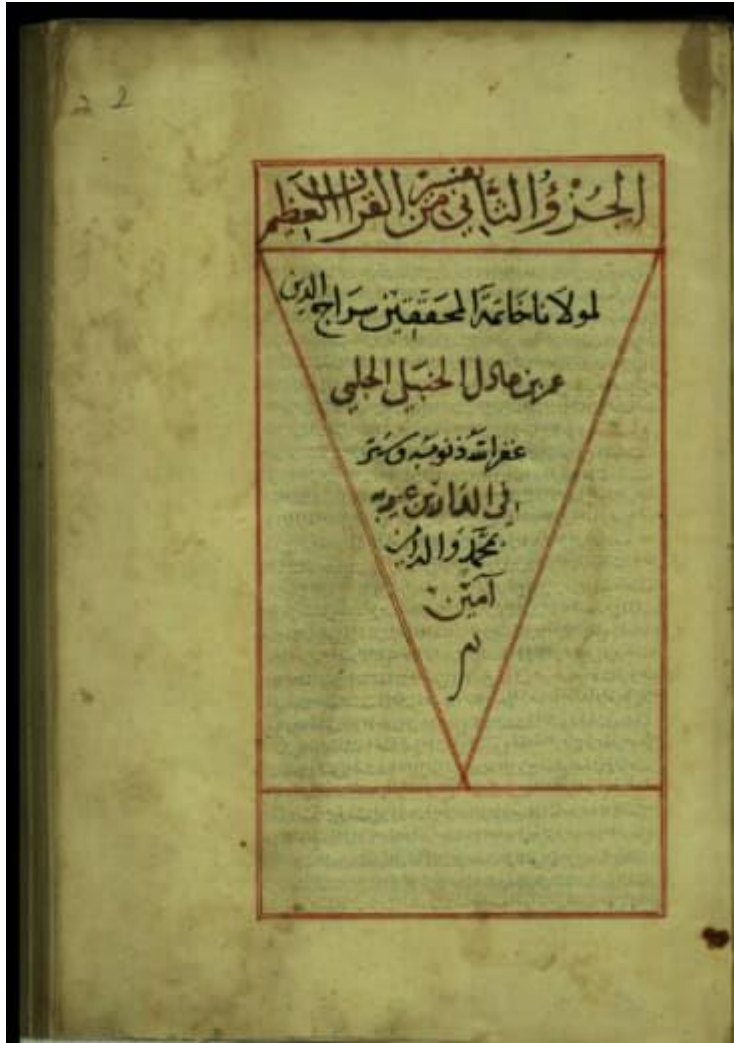 الجُزْؤُ الثَّاني من تفسير القرآن العظيم
لمولانا خاتمة المحققين سراج الدين
عمر بن عادل الحنبلي الحلبي
غفر الله ذنوبه وستر
في الدارين عيوبه
بمحمد واله
آمين